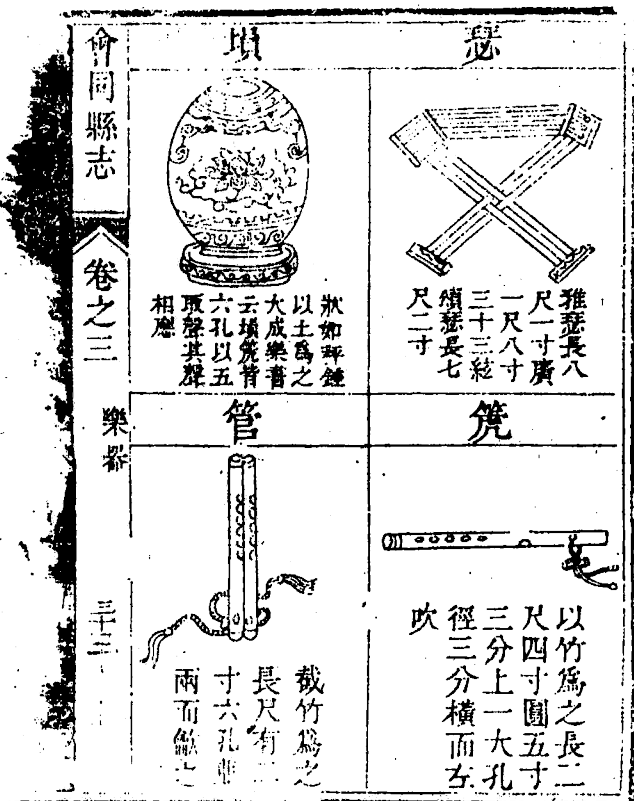 瑟
雅瑟長八
尺一寸廣
一尺八寸
三十三絃
頌瑟長七
尺二寸
塤
狀如秤錘
以土爲之
大成樂書
云塤篪皆
六孔以五
取聲其聲
相應
篪
以竹爲之長二
尺四寸圍五寸
三分上一大孔
徑三分橫而左
吹
管
截竹爲之
長尺有二
寸六孔
兩而
會同縣志
卷之三
樂器
三十二